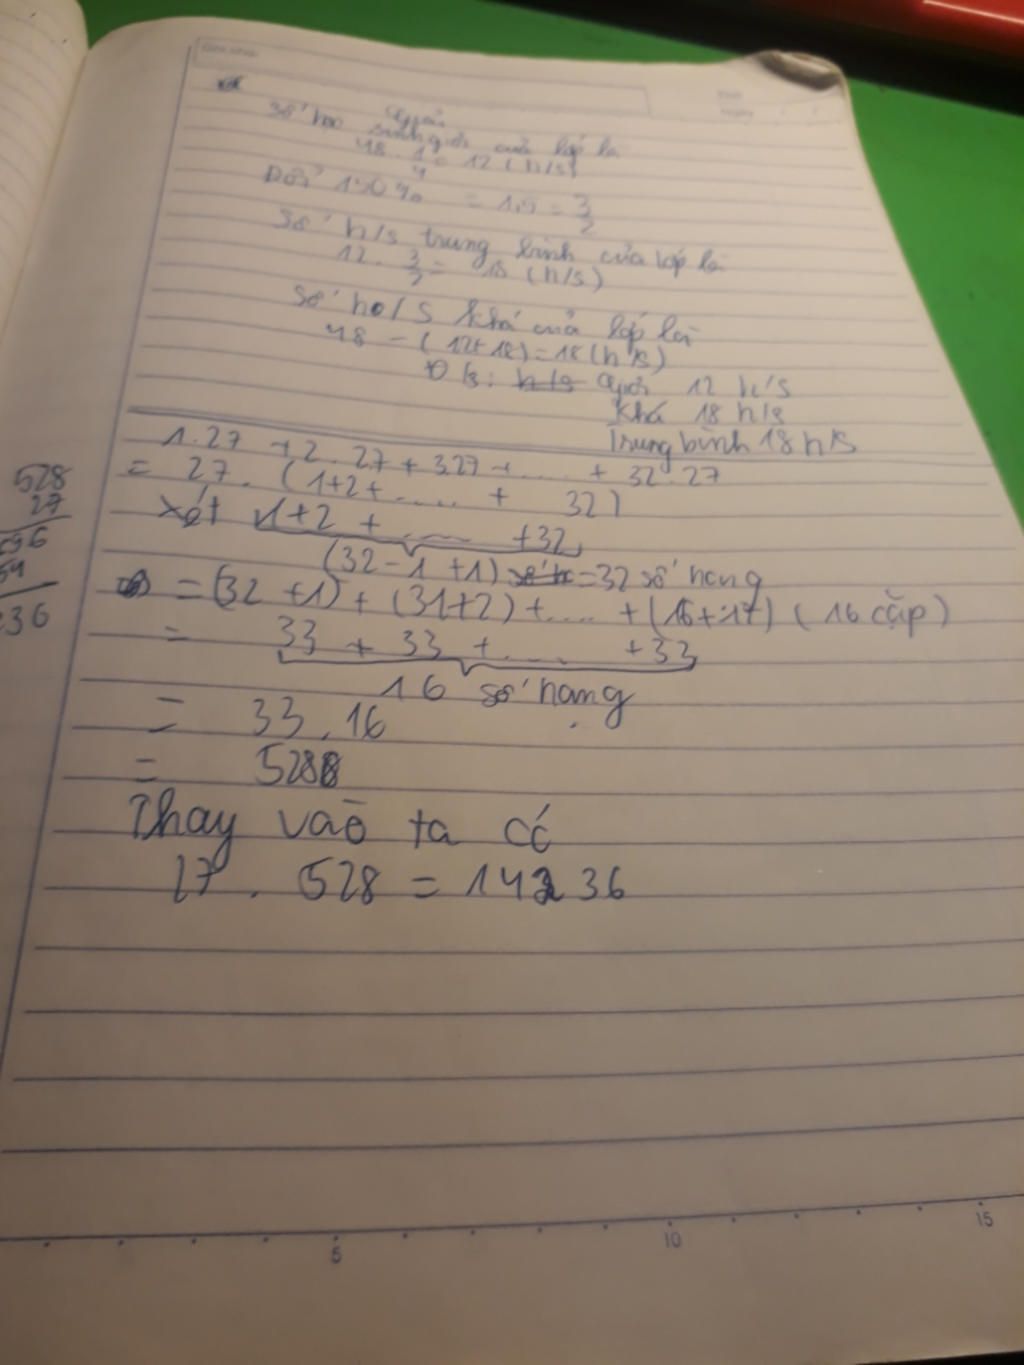 Giải
Số học sinh giỏi của lớp là
48 . 1/4 = 12 (h/s)
Đổi 150% = 1,5 = 3/2
Số h/s trung bình của lớp là
12 . 3/2 = 18 (h/s)
Số ho/s khá của lớp là
48 - (12+18) = 18 (h/s)
Đ/s: h/s Giỏi 12 h/s
Khá 18 h/s
Trung bình 18 h/s
1.27 + 2.27 + 3.27 + .... + 32.27
= 27. (1+2+ ..... + 32)
Xét 1+2 + ..... +32
(32 - 1 + 1) = 32 số hạng
= (32 +1) + (31+2) + .... + (16+17) (16 cặp)
= 33 + 33 + .... +33
16 số hạng
= 33.16
= 528
Thay vào ta có
27 . 528 = 14236
528
27
36
5
10
15